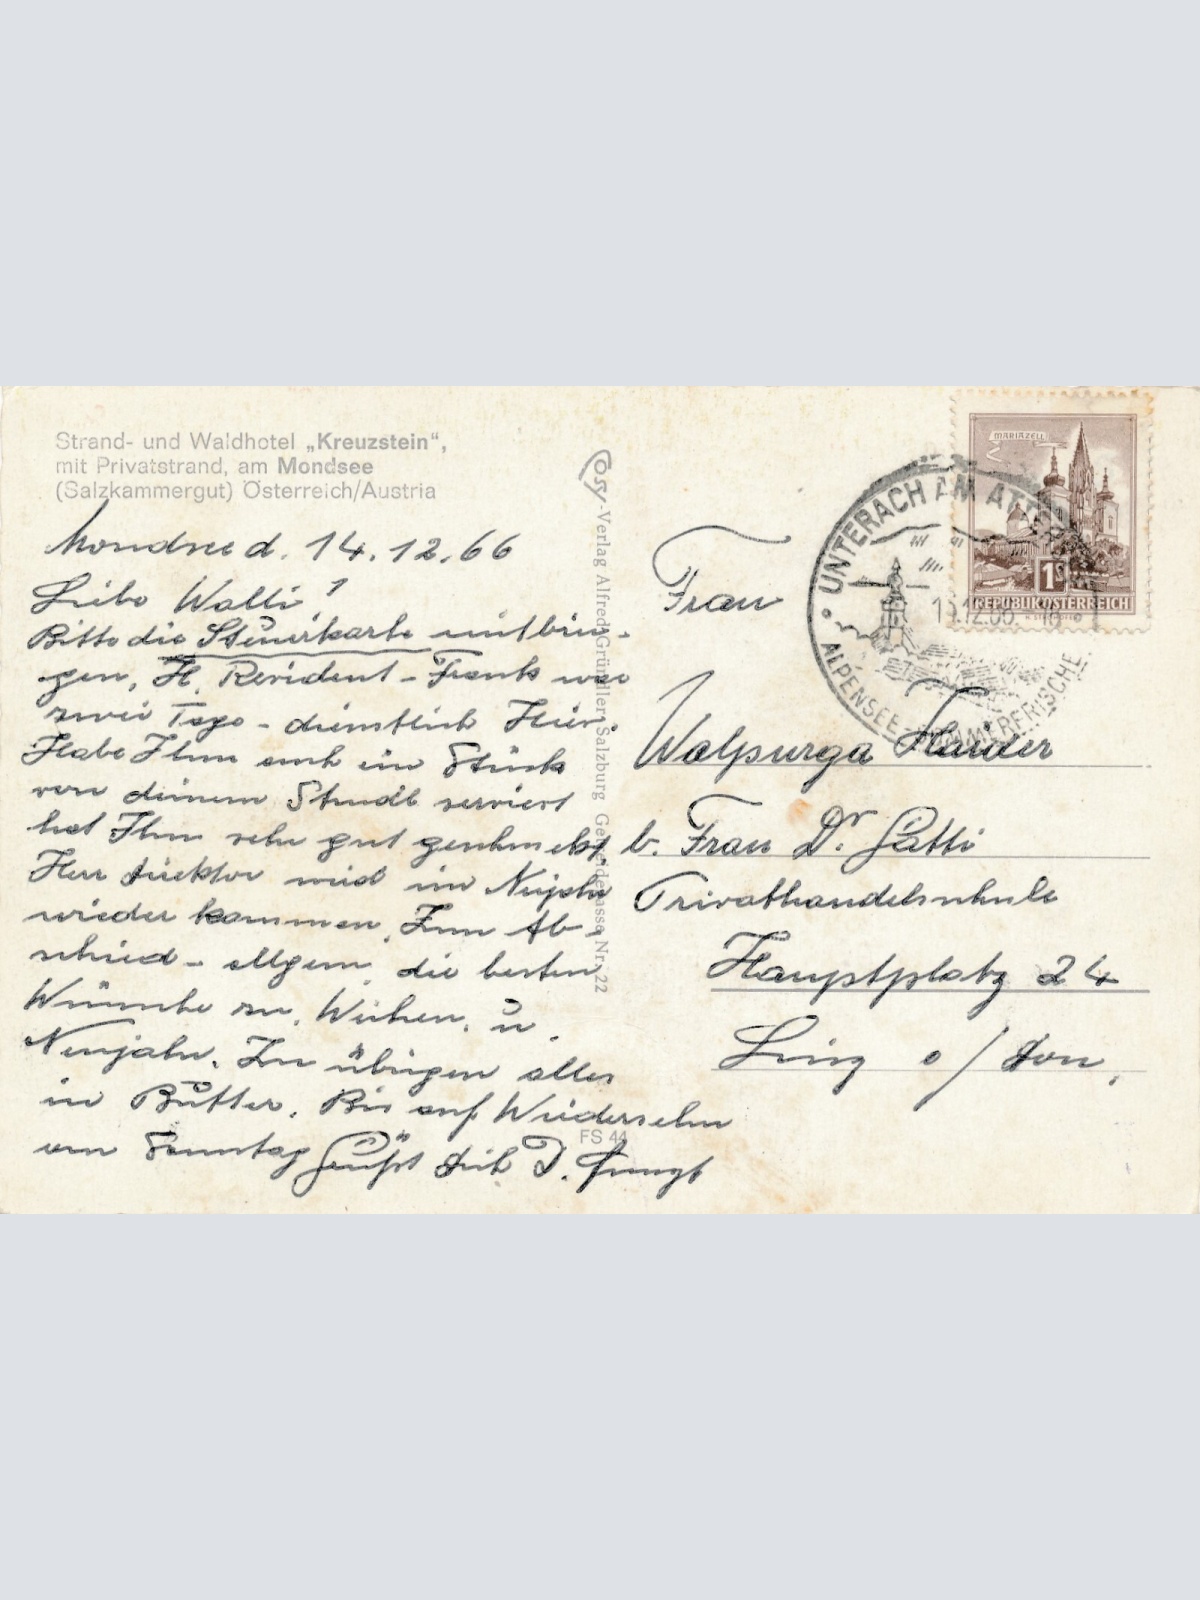 Strand- und Waldhotel „Kreuzstein“,
mit Privatstrand, am Mondsee
(Salzkammergut) Österreich/Austria
Mondsee d. 14.12.66
Liebe Walli!
Bitte die Steuerkarte mitbrin-
gen, H. Revident - Frank war
zwei Tage - dienstlich Hier.
Habe Ihm auch ein Stück
von deinem Strudl serviert
hat Ihm sehr gut geschmekt
Herr Direktor wird im Neujahr
wieder kommen. Zum Ab-
schied - allgem. die besten
Wünsche zu, Weihen. u.
Neujahr. Im übrigen alles
in Butter. Bis auf Wiedersehn
am Sonntag Grüßt dich D.
Cosy-Verlag Alfred Gründler, Salzburg Getreidegasse Nr. 22
FS 44
Frau
Walpurga Haider
b. Frau Dr. Gatti
Privathandelsschule
Hauptplatz 24
Linz a/Don,
MARIAZELL
1S
REPUBLIK ÖSTERREICH
UNTERACH AM ATTERSEE
ALPENSEE - SOMMERFRISCHE